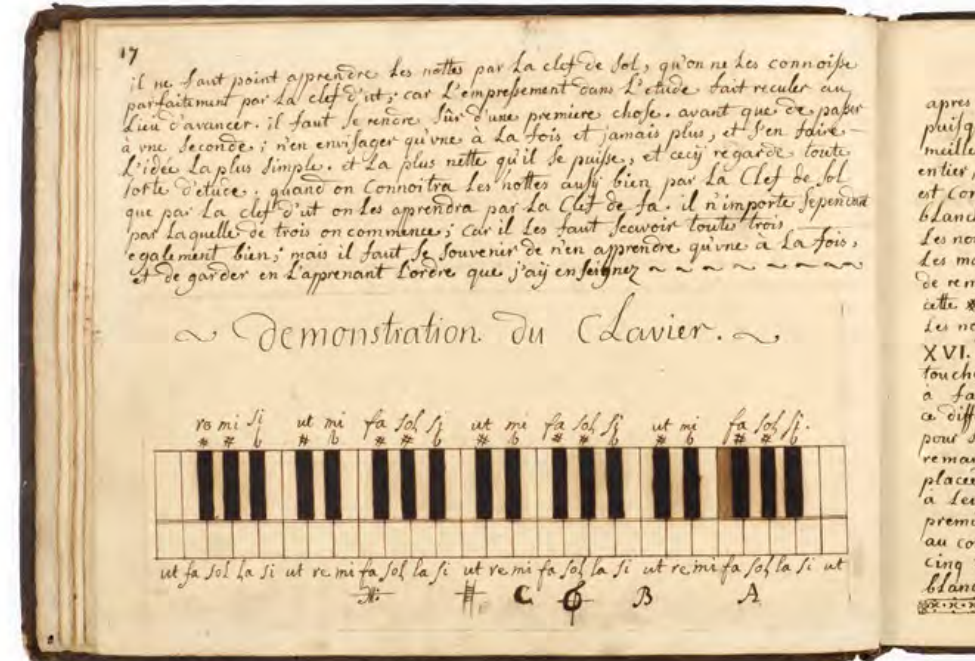 17
il ne faut point apprendre les nottes par la clef de sol, qu'on ne les connoisse
parfaitement par la clef d'ut; car l'empressement dans l'etude fait reculer au
lieu d'avancer. il faut se rendre sûr d'une premiere chose. avant que de passer
à vne seconde; n'en envisager qu'vne à la fois et jamais plus, et s'en faire
l'idée la plus simple. et la plus nette qu'il se puisse, et cecij regarde toute
sorte d'etude. quand on connoitra les nottes aussij bien par la clef de sol
que par la clef d'ut on les apprendra par la clef de fa. il n'importe sependant
par laquelle de trois on commence; car il les faut scavoir toutes trois
egalement bien; mais il faut se souvenir de n'en apprendre qu'vne à la fois,
et de garder en l'apprenant l'ordre que j'aij enseignez
~ Demonstration du Clavier. ~
re mi si ut mi fa sol si ut mi fa sol si ut mi fa sol si.
# # b # b # # b # b # # b # b # # b
ut fa sol la si ut re mi fa sol la si ut re mi fa sol la si ut re mi fa sol la si ut
C B A
apres
puisq
meille
entier
est con
blanc
les no
les ma
de rem
cette #
les no
XVI.
touch
à fa
ce diff
pour
remar
placée
à leu
premi
au co
cinq
blanc